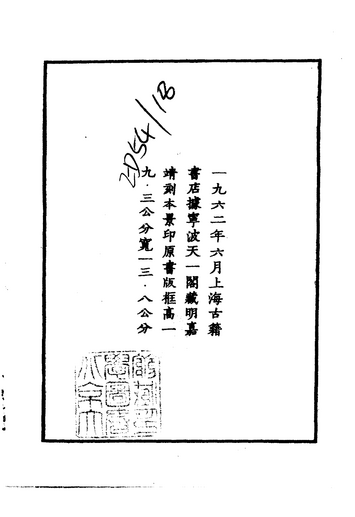 一九六二年六月上海古籍
書店據寧波天一閣藏明嘉
靖刻本景印原書版框高一
九·三公分寬一三·八公分